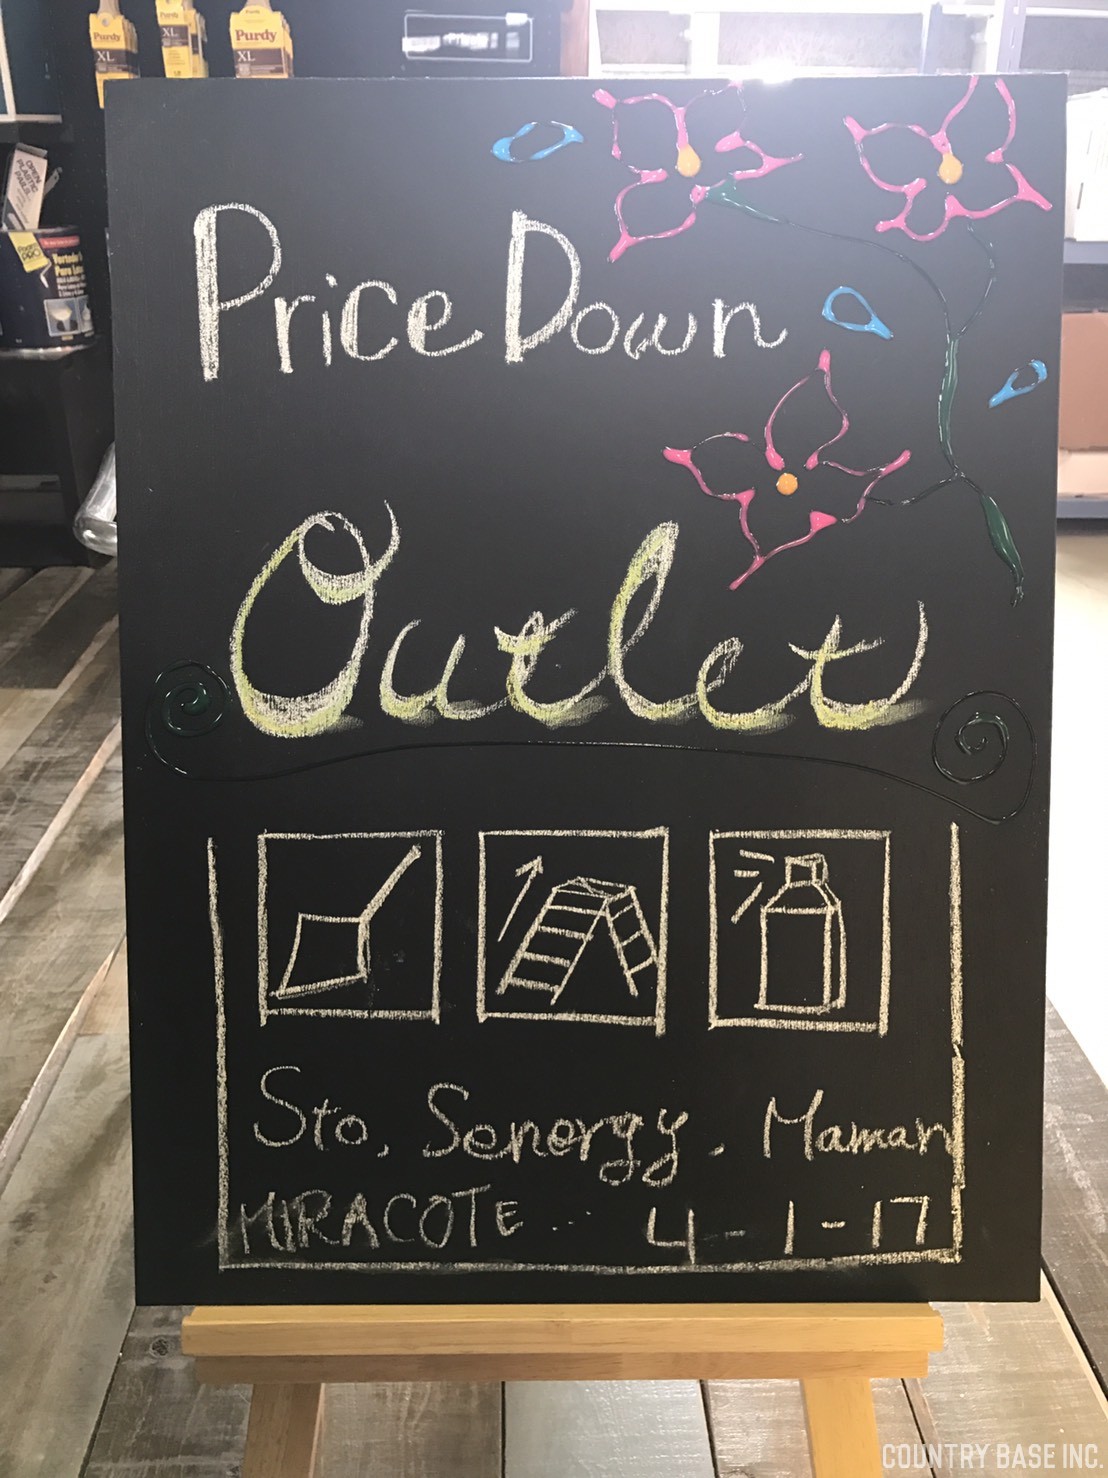 Purdy
XL
XL
Purdy
XL
OPEN
PLASTIC
PAILS
Price Down
Outlet
Sto, Senergy, Maman
MIRACOTE... 4-1-17
COUNTRY BASE INC.